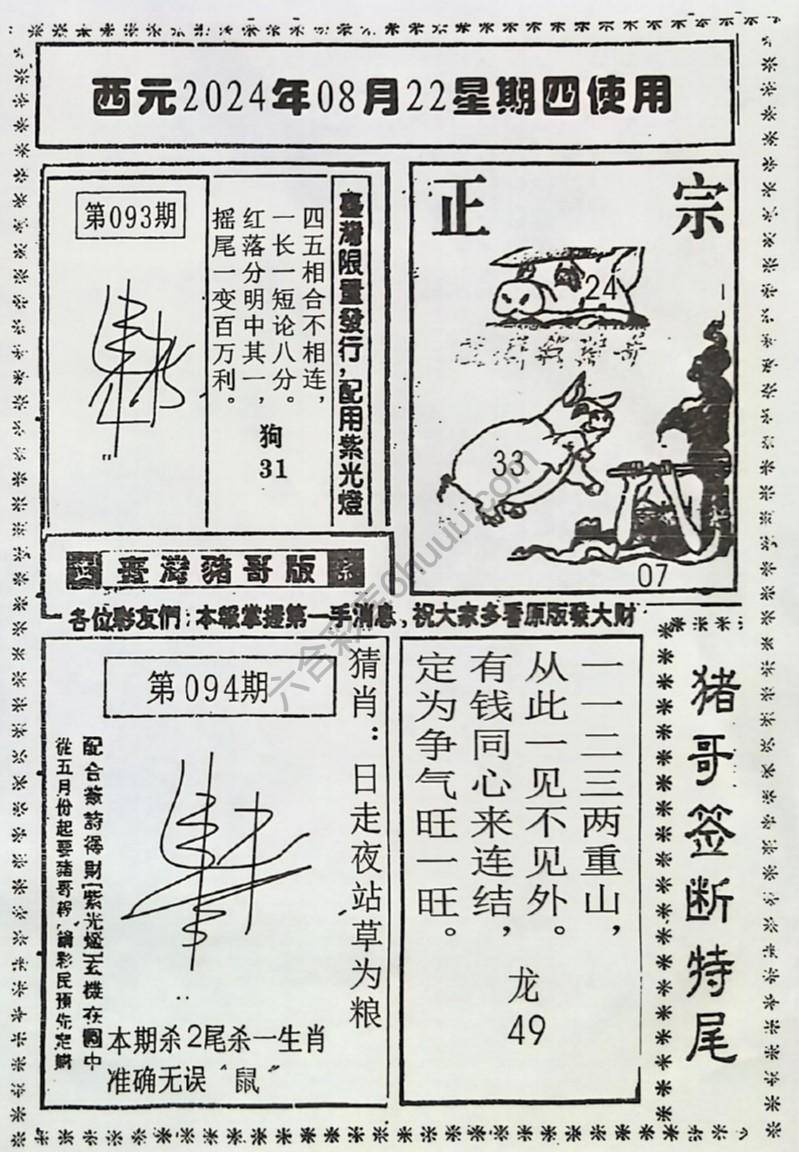 西元2024年08月22星期四使用
第093期
四五相合不相连，
一长一短论八分。
红落分明中其一，
摇尾一变百万利。
狗
31
臺灣限量發行，配用紫光燈
正 宗
24
33
07
臺灣豬哥版
各位彩友們：本報掌握第一手消息，祝大家多看原版發大財
第094期
猜肖：日走夜站草为粮
配合簽詩得財紫光燈玄機在圖中
從五月份起要豬哥報 請彩民預先定購
本期杀2尾杀一生肖
准确无误“鼠”
一一二三两重山，
从此一见不见外。
有钱同心来连结，
定为争气旺一旺。
龙
49
猪哥签断特尾
六合彩库6huuu.com